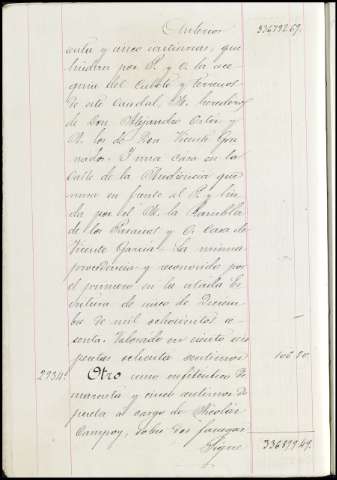 Anterior 336792.69.
centa y cinco centimos, que
lindan por P. y
del Cubete y terrenos
de este caudal, N. herederos
de Don Alejandro Ortiz y
M. los de Don Vicente Gra
nados. Y una casa en la
Calle de la Audiencia que
en frente al P. y lin
da por el N. la Rambla
de los y C. Casa de
Vicente Garcia. La misma
procedencia y reconocido por
el primero en la citada Es
critura de once de Diciem
bre de mil ochocientos se
senta. Valorado en ciento seis
pesetas ochenta centimos 106.80.
2934. Otro censo enfiteutico de
cuarenta y cinco centimos de
peseta a cargo de Nicolás
Campoy, sobre dos fanegas
Sigue 336899.49.